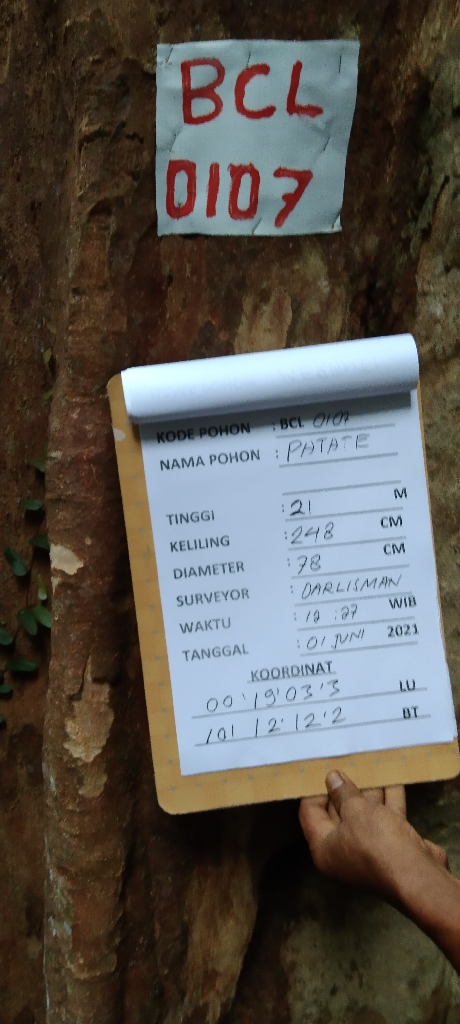 BCL
0107
KODE POHON : BCL 0107
NAMA POHON : PATATE
TINGGI : 21 M
KELILING : 248 CM
DIAMETER : 78 CM
SURVEYOR : DARLISMAN
WAKTU : 12 : 27 WIB
TANGGAL : 01 JUNI 2021
KOORDINAT
00'19'03'3 LU
101 12'12'2 BT